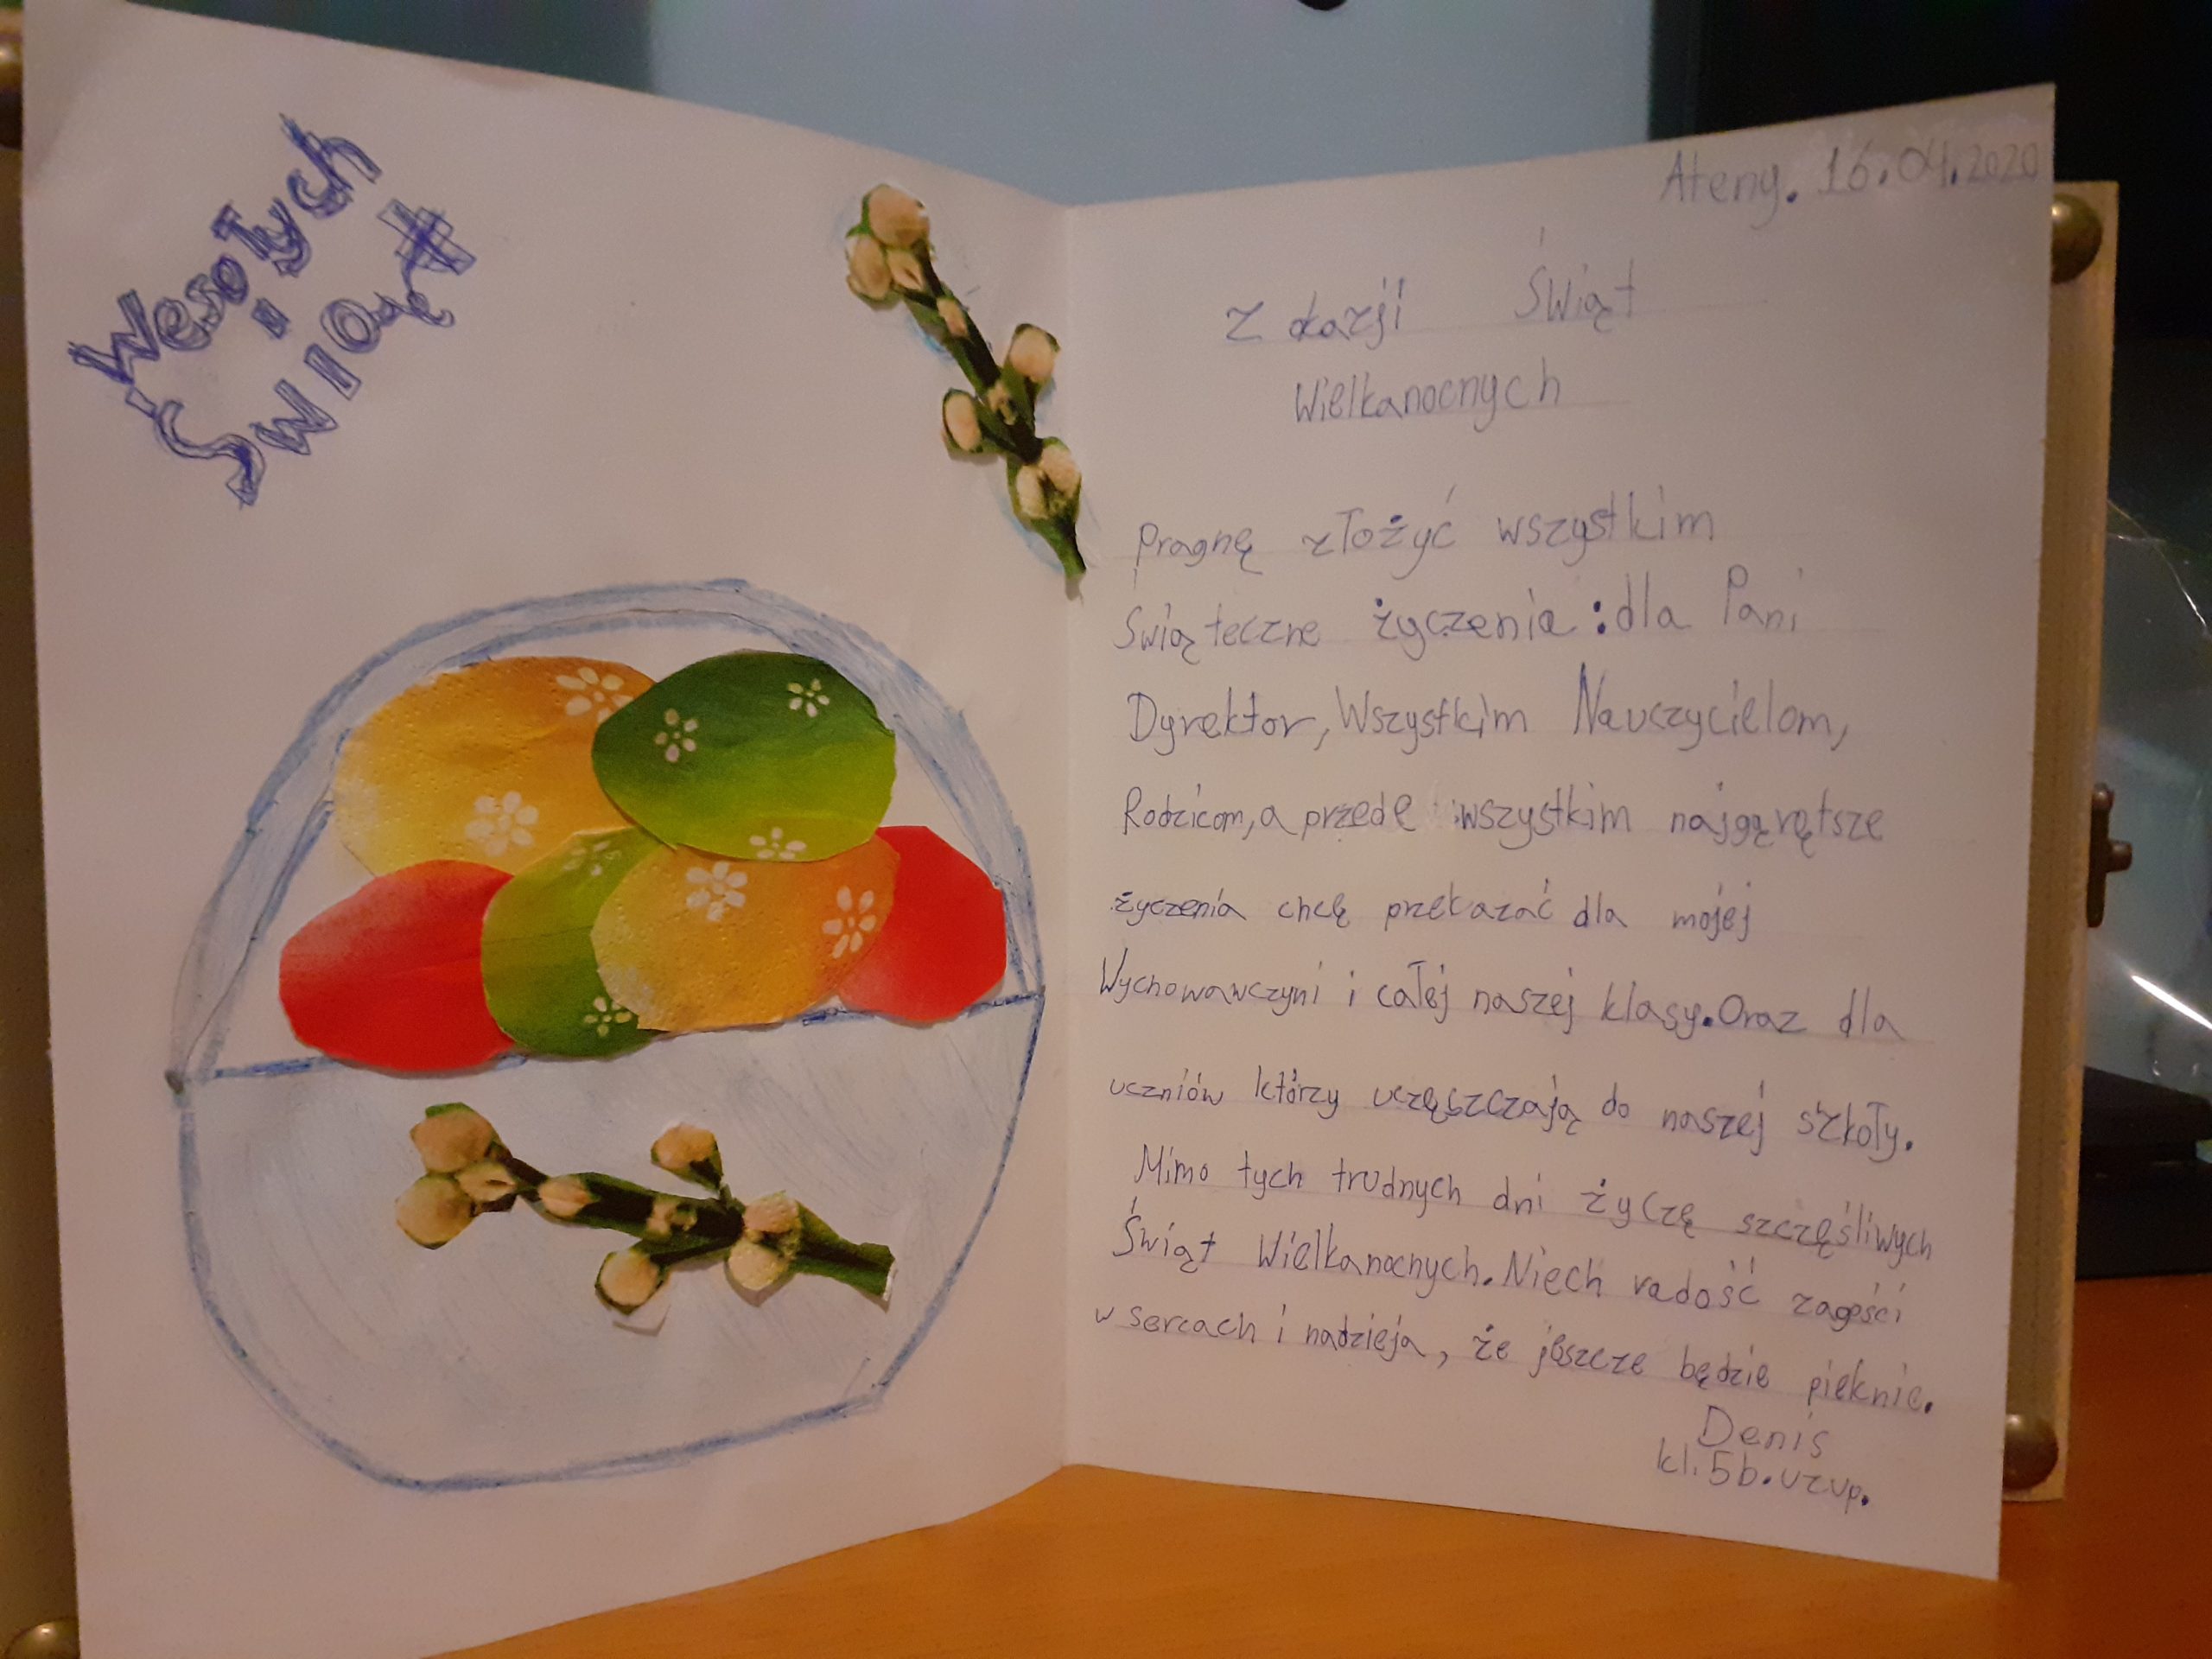 Wesołych
Świąt
Ateny. 16.04.2020
Z okazji Świąt
Wielkanocnych
Pragnę złożyć wszystkim
Świąteczne życzenia: dla Pani
Dyrektor, Wszystkim Nauczycielom,
Rodzicom, a przede wszystkim najgąrętsze
życzenia chcę przekazać dla mojej
Wychowawczyni i całej naszej klasy. Oraz dla
uczniów którzy uczęszczają do naszej szkoły.
Mimo tych trudnych dni życzę szczęśliwych
Świąt Wielkanocnych. Niech radość zagości
w sercach i nadzieja, że jeszcze będzie pięknie.
Denis
kl. 5b. uzup.